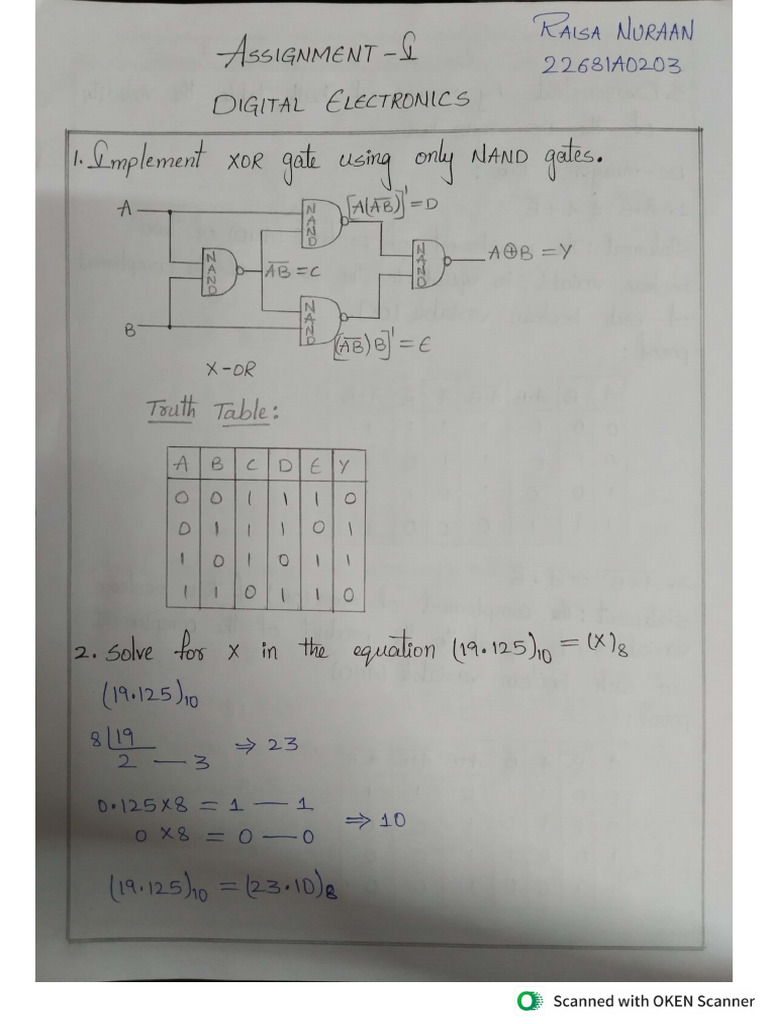 RAISA NURAAN
ASSIGNMENT - I
22681A0203
DIGITAL ELECTRONICS
1. Implement XOR gate using only NAND gates.
A
NAND
[A(A̅B̅)]' = D
NAND
A̅B̅ = C
NAND
A⊕B = Y
B
NAND
(A̅B̅)B]' = E
X-OR
Truth Table:
A B C D E Y
0 0 1 1 1 0
0 1 1 1 0 1
1 0 1 0 1 1
1 1 0 1 1 0
2. Solve for X in the equation (19.125)₁₀ = (X)₈
(19.125)₁₀
8 | 19
2 — 3 ⇒ 23
0.125×8 = 1 — 1
0 ×8 = 0 — 0 ⇒ 10
(19.125)₁₀ = (23.10)₈
Scanned with OKEN Scanner